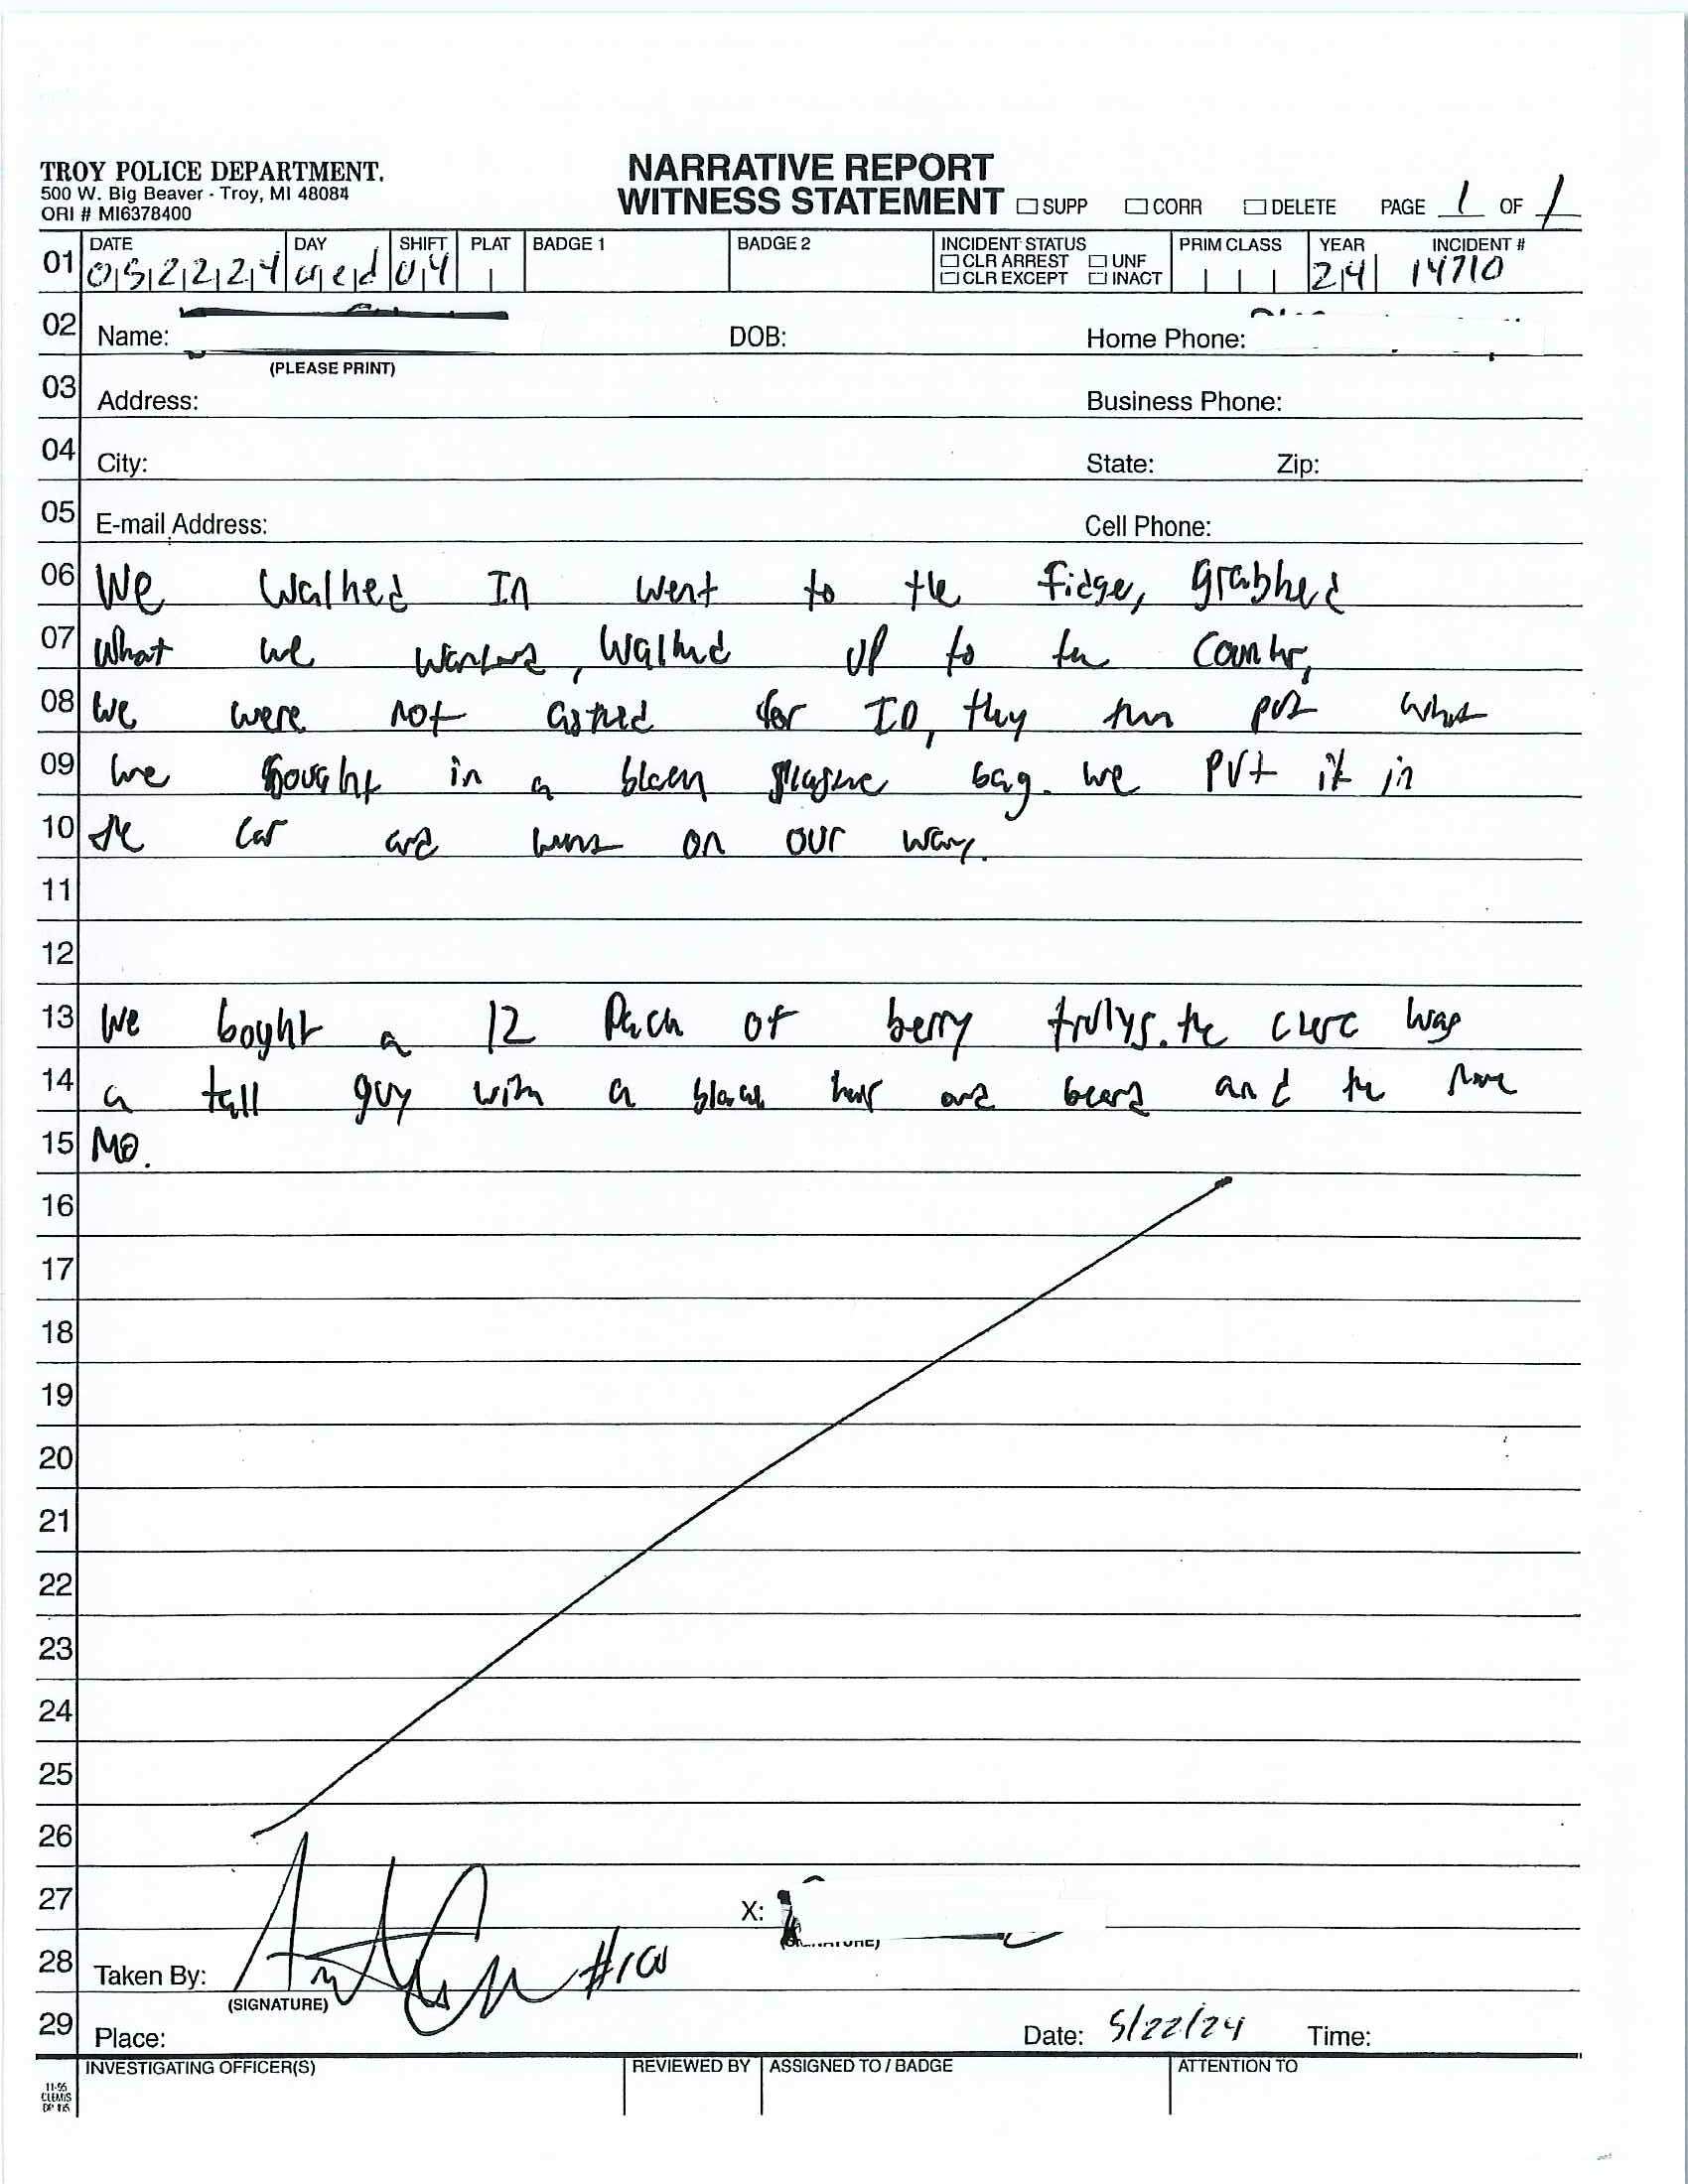 TROY POLICE DEPARTMENT.
500 W. Big Beaver - Troy, MI 48084
ORI # MI6378400
NARRATIVE REPORT
WITNESS STATEMENT SUPP CORR DELETE PAGE 1 OF 1
DATE DAY SHIFT PLAT BADGE 1 BADGE 2 INCIDENT STATUS PRIM CLASS YEAR INCIDENT #
CLR ARREST UNF
CLR EXCEPT INACT
01 052224 wed 04 24 14710
02 Name: DOB: Home Phone:
(PLEASE PRINT)
03 Address: Business Phone:
04 City: State: Zip:
05 E-mail Address: Cell Phone:
06 We Walked In went to the fidge, grabbed
07 What we wanted, Walked up to the Counter,
08 We were not asked for ID, they then put what
09 we bought in a bag. we PUT it in
10 the car and on our way.
11
12
13 We boght a 12 Pack of berry trulys. the clerc was
14 a tall guy with a black hair and beard and the name
15 MO.
16
17
18
19
20
21
22
23
24
25
26
27 X:
28 Taken By:
(SIGNATURE)
29 Place: Date: 5/22/24 Time:
INVESTIGATING OFFICER(S) REVIEWED BY ASSIGNED TO / BADGE ATTENTION TO
11-95
CLEMIS